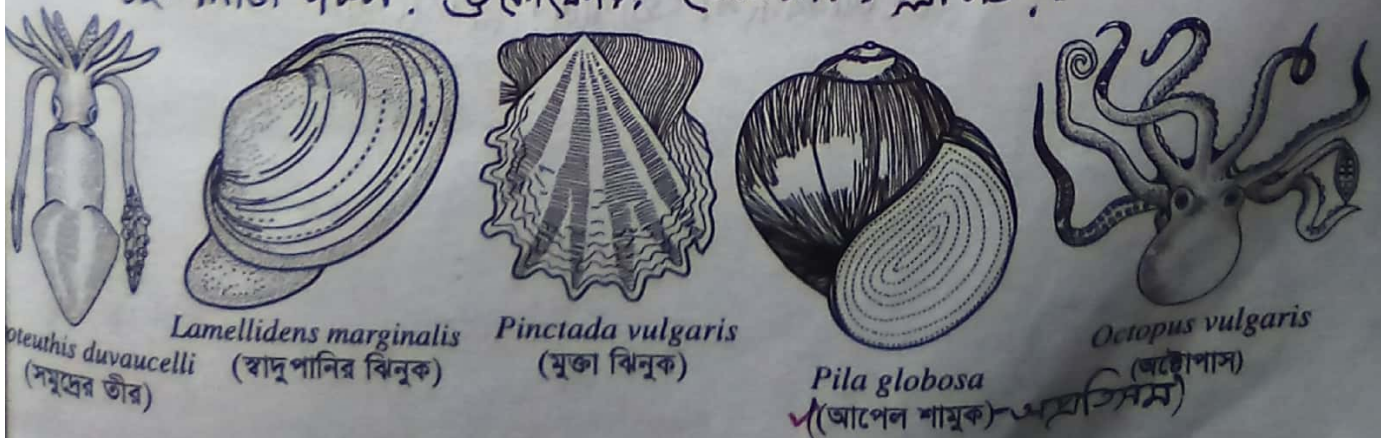 oteuthis duvaucelli
(সমুদ্রের তীর)
Lamellidens marginalis
(স্বাদুপানির ঝিনুক)
Pinctada vulgaris
(মুক্তা ঝিনুক)
Pila globosa
(আপেল শামুক)-অপ্রতিসম)
Octopus vulgaris
(অক্টোপাস)